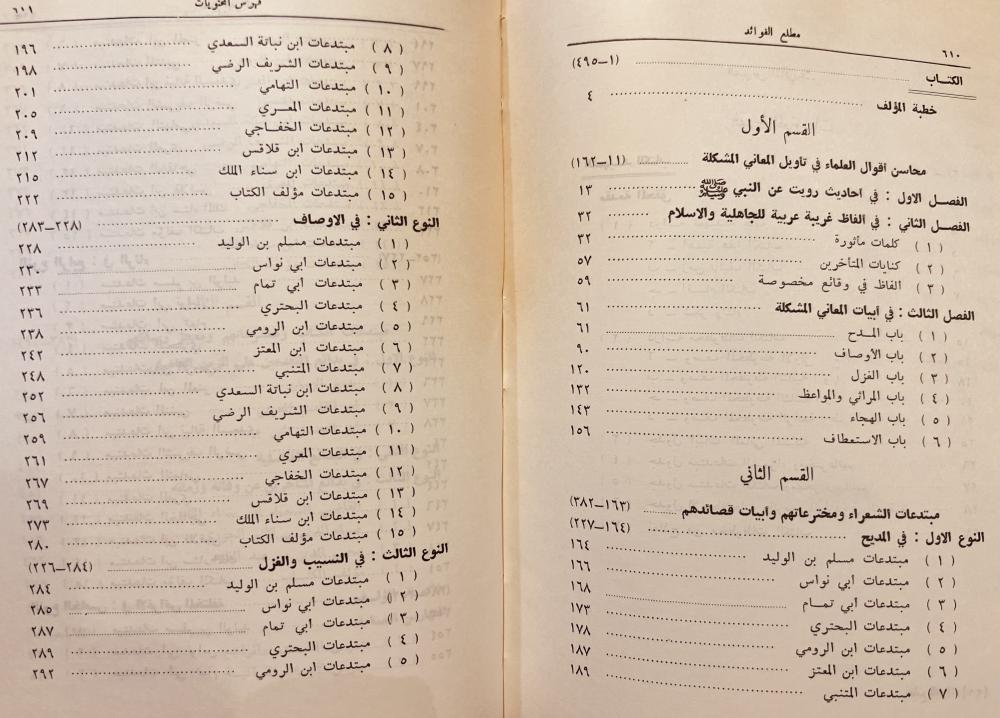 مطلع الفوائد
٦١٠
الكتاب (١-٤٩٥)
خطبة المؤلف ٤
القسم الأول
محاسن أقوال العلماء في تأويل المعاني المشكلة (١١-١٦٢)
الفصل الاول : في احاديث رويت عن النبي ﷺ ١٣
الفصل الثاني : في الفاظ غريبة عربية للجاهلية والاسلام ٣٢
( ١ ) كلمات مأثورة ٣٢
( ٢ ) كنايات المتأخرين ٥٧
( ٣ ) الفاظ في وقائع مخصوصة ٥٩
الفصل الثالث : في أبيات المعاني المشكلة ٦١
( ١ ) باب المـدح ٦١
( ٢ ) باب الأوصاف ٩٠
( ٣ ) باب الغزل ١٢٠
( ٤ ) باب المراثي والمواعظ ١٣٢
( ٥ ) باب الهجاء ١٤٣
( ٦ ) باب الاستعطاف ١٥٦
القسم الثاني
مبتدعات الشعراء ومخترعاتهم وأبيات قصائدهم (١٦٣-٣٨٢)
النوع الاول : في المديح (١٦٤-٢٢٧)
( ١ ) مبتدعات مسلم بن الوليد ١٦٤
( ٢ ) مبتدعات ابي نواس ١٦٦
( ٣ ) مبتدعات أبي تمـام ١٦٨
( ٤ ) مبتدعات البحتري ١٧٣
( ٥ ) مبتدعات ابن الرومي ١٧٨
( ٦ ) مبتدعات ابن المعتز ١٨٧
( ٧ ) مبتدعات المتنبي ١٨٩
فهرس المحتويات
٦١١
( ٨ ) مبتدعات ابن نباتة السعدي ١٩٦
( ٩ ) مبتدعات الشريف الرضي ١٩٨
( ١٠ ) مبتدعات التهامي ٢٠١
( ١١ ) مبتدعات المعـري ٢٠٥
( ١٢ ) مبتدعات الخفـاجي ٢٠٩
( ١٣ ) مبتدعات ابن قلاقس ٢١٢
( ١٤ ) مبتدعات ابن سناء الملك ٢١٥
( ١٥ ) مبتدعات مؤلف الكتاب ٢٢٢
النوع الثاني : في الاوصاف (٢٢٨-٢٨٣)
( ١ ) مبتدعات مسلم بن الوليد ٢٢٨
( ٢ ) مبتدعات ابي نواس ٢٣٠
( ٣ ) مبتدعات ابي تمام ٢٣٣
( ٤ ) مبتدعات البحتري ٢٣٦
( ٥ ) مبتدعات ابن الرومي ٢٣٨
( ٦ ) مبتدعات ابن المعتز ٢٤٢
( ٧ ) مبتدعات المتنبي ٢٤٨
( ٨ ) مبتدعات ابن نباتة السعدي ٢٥٢
( ٩ ) مبتدعات الشريف الرضي ٢٥٦
( ١٠ ) مبتدعات التهامي ٢٥٩
( ١١ ) مبتدعات المعري ٢٦١
( ١٢ ) مبتدعات الخفاجي ٢٦٧
( ١٣ ) مبتدعات ابن قلاقس ٢٦٩
( ١٤ ) مبتدعات ابن سناء الملك ٢٧٣
( ١٥ ) مبتدعات مؤلف الكتاب ٢٨٠
النوع الثالث : في النسيب والغزل (٢٨٤-٢٢٦)
( ١ ) مبتدعات مسلم بن الوليد ٢٨٤
( ٢ ) مبتدعات ابي نواس ٢٨٥
( ٣ ) مبتدعات ابي تمام ٢٨٧
( ٤ ) مبتدعات البحتري ٢٨٩
( ٥ ) مبتدعات ابن الرومي ٢٩٢